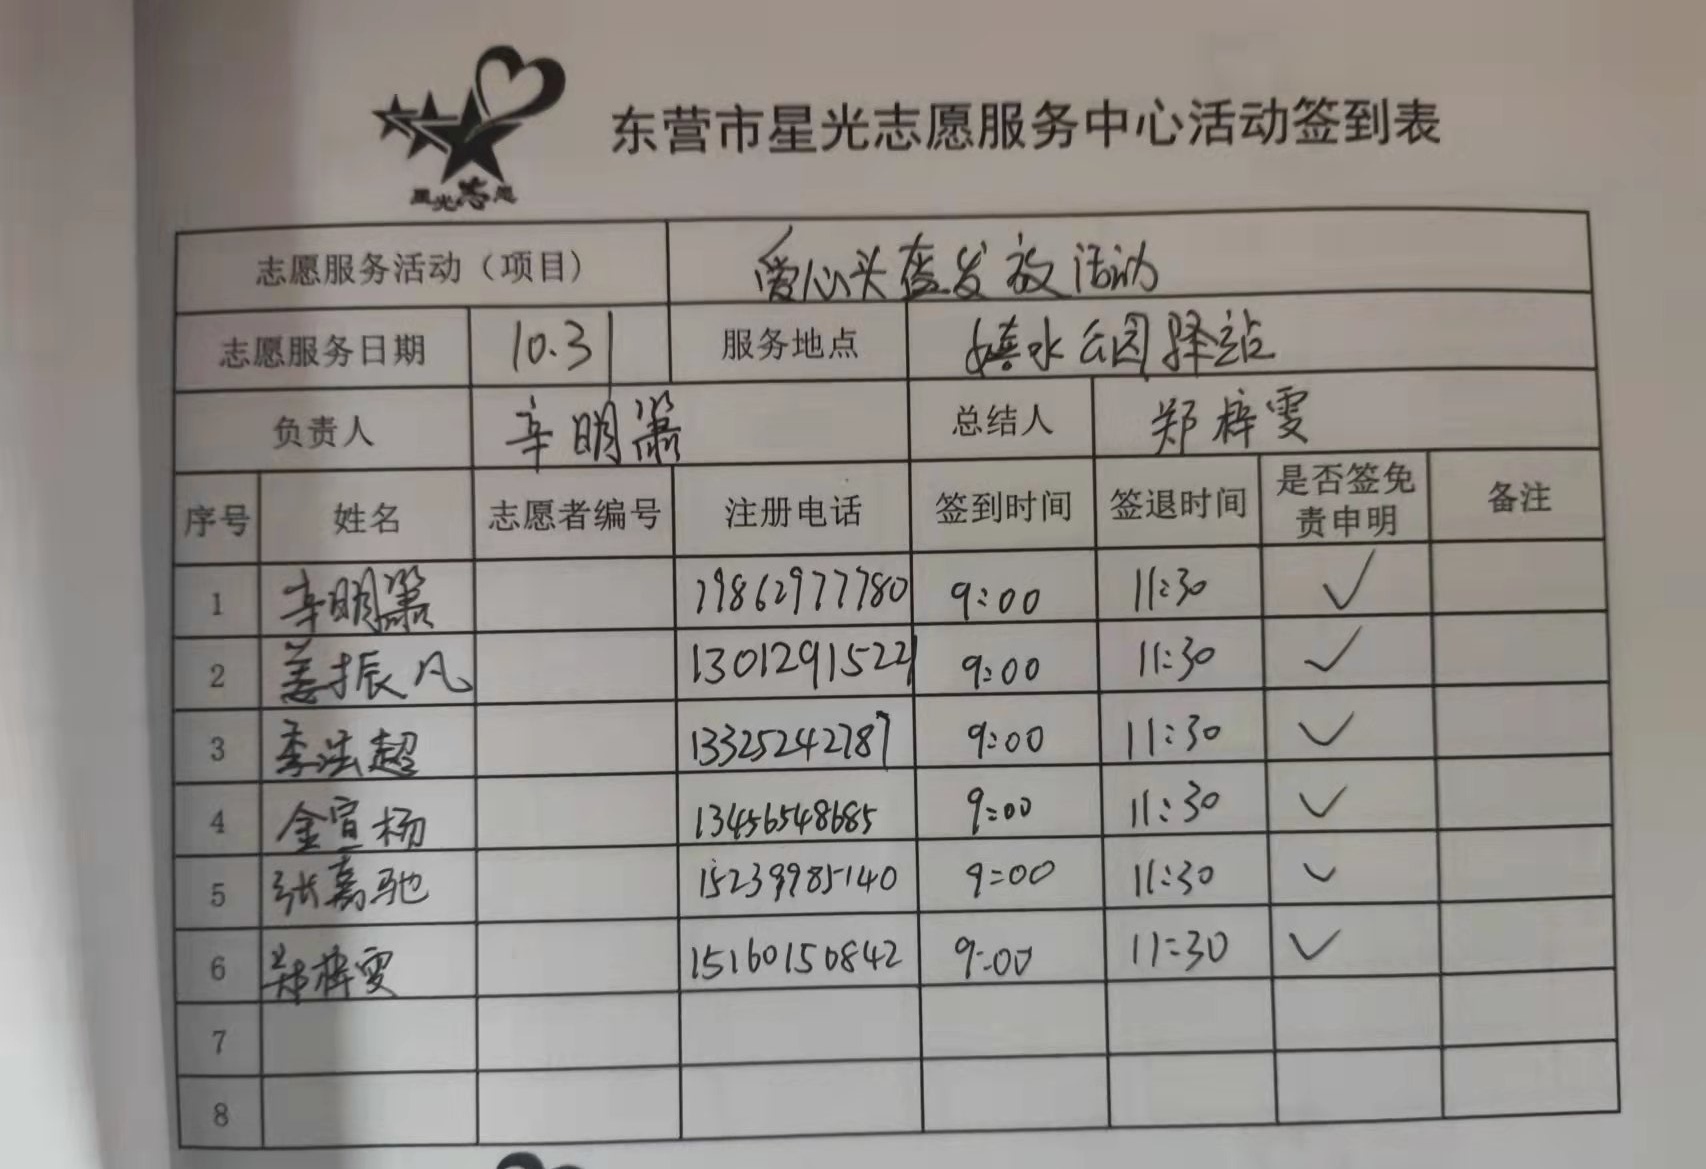 星光志愿
东营市星光志愿服务中心活动签到表
志愿服务活动（项目） 爱心头盔发放活动
志愿服务日期 10.31 服务地点 嬉水公园驿站
负责人 辛明篱 总结人 郑梓雯
序号 姓名 志愿者编号 注册电话 签到时间 签退时间 是否签免责申明 备注
1 辛明篱 19862977780 9:00 11:30 ✓
2 姜振凡 13012915221 9:00 11:30 ✓
3 李浩超 13325242787 9:00 11:30 ✓
4 金宣杨 13456548685 9:00 11:30 ✓
5 张嘉驰 15239985140 9:00 11:30 ✓
6 郑梓雯 15160150842 9:00 11:30 ✓
7
8